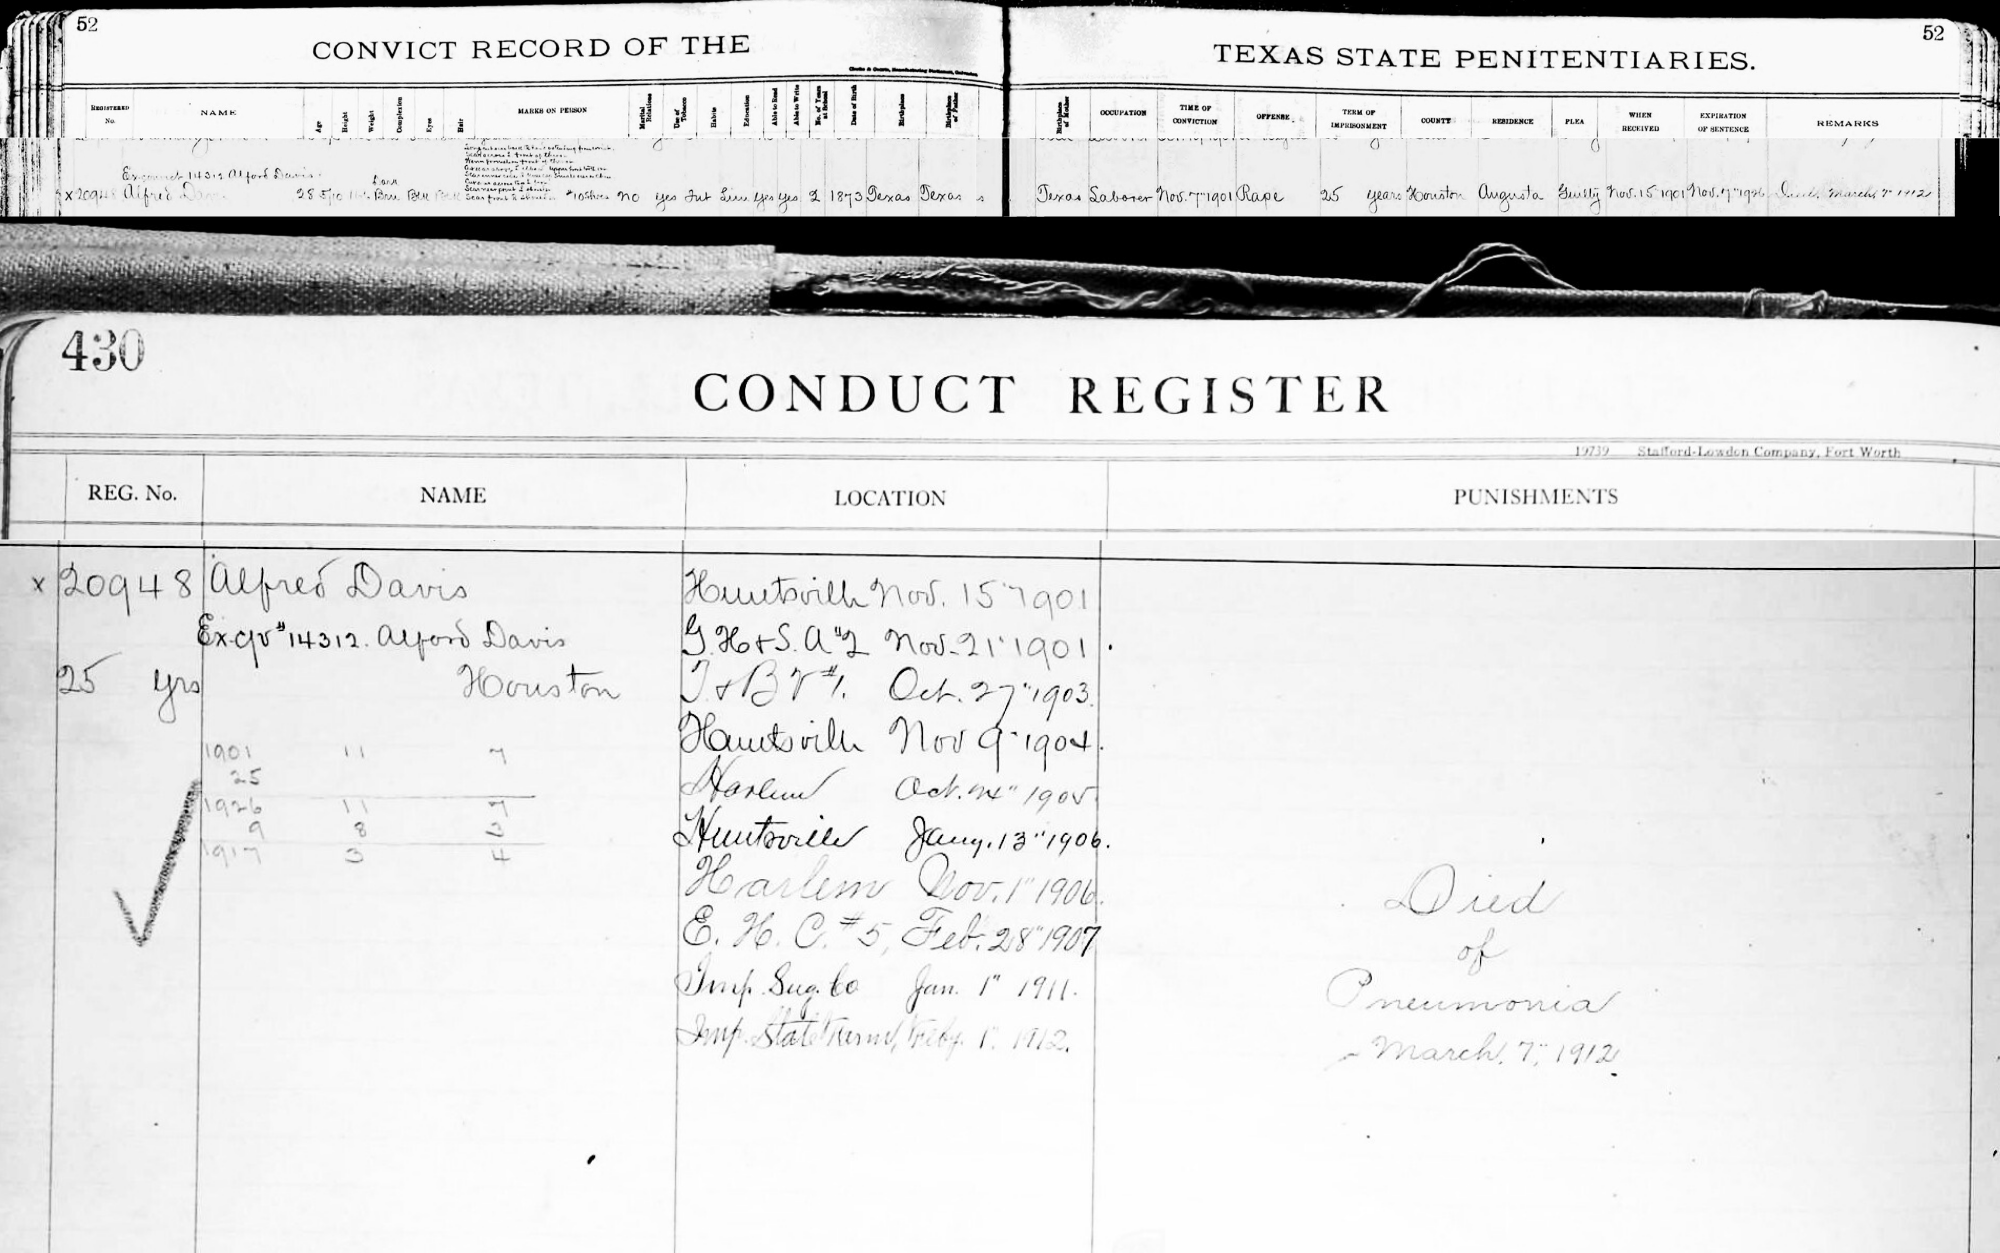 52
52
CONVICT RECORD OF THE
TEXAS STATE PENITENTIARIES.
REGISTERED No.
NAME
Age
Height
Weight
Complexion
Eyes
Hair
MARKS ON PERSON
Marital Relations
Use of Tobacco
Habits
Education
Able to Read
Able to Write
No. of Years at School
Date of Birth
Birthplace
Birthplace of Father
Birthplace of Mother
OCCUPATION
TIME OF CONVICTION
OFFENSE
TERM OF IMPRISONMENT
COUNTY
RESIDENCE
PLEA
WHEN RECEIVED
EXPIRATION OF SENTENCE
REMARKS
Exconvict 14312 Alford Davis
Dark
x 20948 Alfred Davis 28 5/10 Brn #10 Shoes no yes Int Lim yes yes 2 1873 Texas Texas
Texas Laborer Nov. 7" 1901 Rape 25 years Houston Augusta Guilty Nov. 15 1901 Nov. 7" 1926 Died March 7" 1912
430
CONDUCT REGISTER
19739 Stafford-Lowdon Company, Fort Worth
REG. No. NAME LOCATION PUNISHMENTS
x 20948 Alfred Davis Huntsville Nov. 15" 1901
Ex-Cjv #14312. Alford Davis G. H & S. A #2 Nov. 21" 1901.
25 yrs Houston I & B V #1. Oct. 27" 1903.
Huntsville Nov 9" 1904.
1901 11 7
25 Harlem Oct. 24" 1905
1926 11 7
9 8 3 Huntsville Jany. 13" 1906.
1917 3 4
Harlem Nov. 1" 1906.
E. H. C. #5, Feb. 28" 1907
Imp. Sug. Co Jan. 1" 1911.
Imp. State Feby. 1". 1912.
Died
of
Pneumonia
March. 7", 1912.